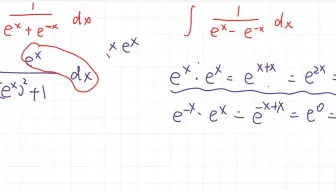 1/(eˣ + e⁻ˣ) dx
∫ 1/(eˣ - e⁻ˣ) dx
eˣ dx / (eˣ)² + 1
ˣ eˣ
eˣ · eˣ = eˣ⁺ˣ = e²ˣ =
e⁻ˣ · eˣ = e⁻ˣ⁺ˣ = e⁰ =